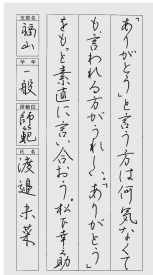 「ありがとう」と言う方は何気なくて
も、言われる方がうれしい、「ありがとう」
をもっと素直に言い合おう。松下幸之助
支部名
福山
学年
一般
段級位
師範
氏名
渡邉未菜